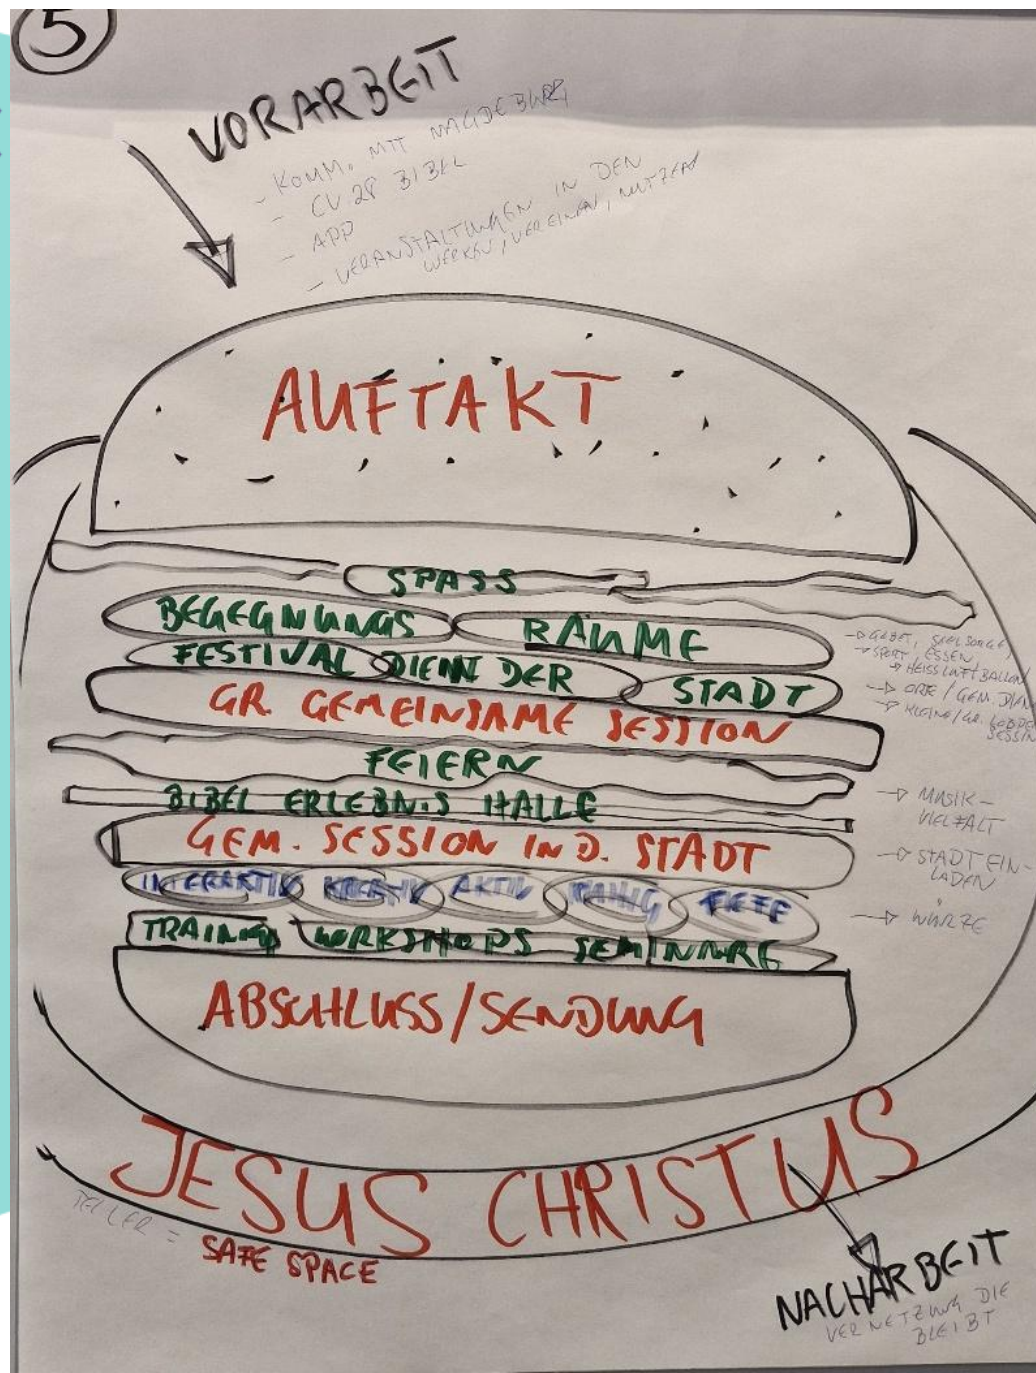 5
VORARBEIT
- KOMM. MIT MAGDEBURG
- CV 28 BIBEL
- APP
- VERANSTALTUNGEN IN DEN
WERKEN, VEREINEN, NUTZEN
AUFTAKT
SPASS
BEGEGNUNGS RÄUME
FESTIVAL DIENT DER STADT
GR. GEMEINSAME SESSION
FEIERN
BIBEL ERLEBNIS HALLE
GEM. SESSION IN D. STADT
INTERAKTIV KREATIV AKTIV RUHIG TIEFE
TRAINING WORKSHOPS SEMINARE
ABSCHLUSS/SENDUNG
→ GEBET, SEELSORGE,
→ SPORT, ESSEN
→ HEISSLUFTBALLON
→ ORTE / GEM. DIAK
→ KLEINE/GR. LOBPR
SESSION
→ MUSIK-
VIELFALT
→ STADT EIN-
LADEN
→ WÜRZE
JESUS CHRISTUS
TELLER =
SAFE SPACE
NACHARBEIT
VERNETZUNG DIE
BLEIBT